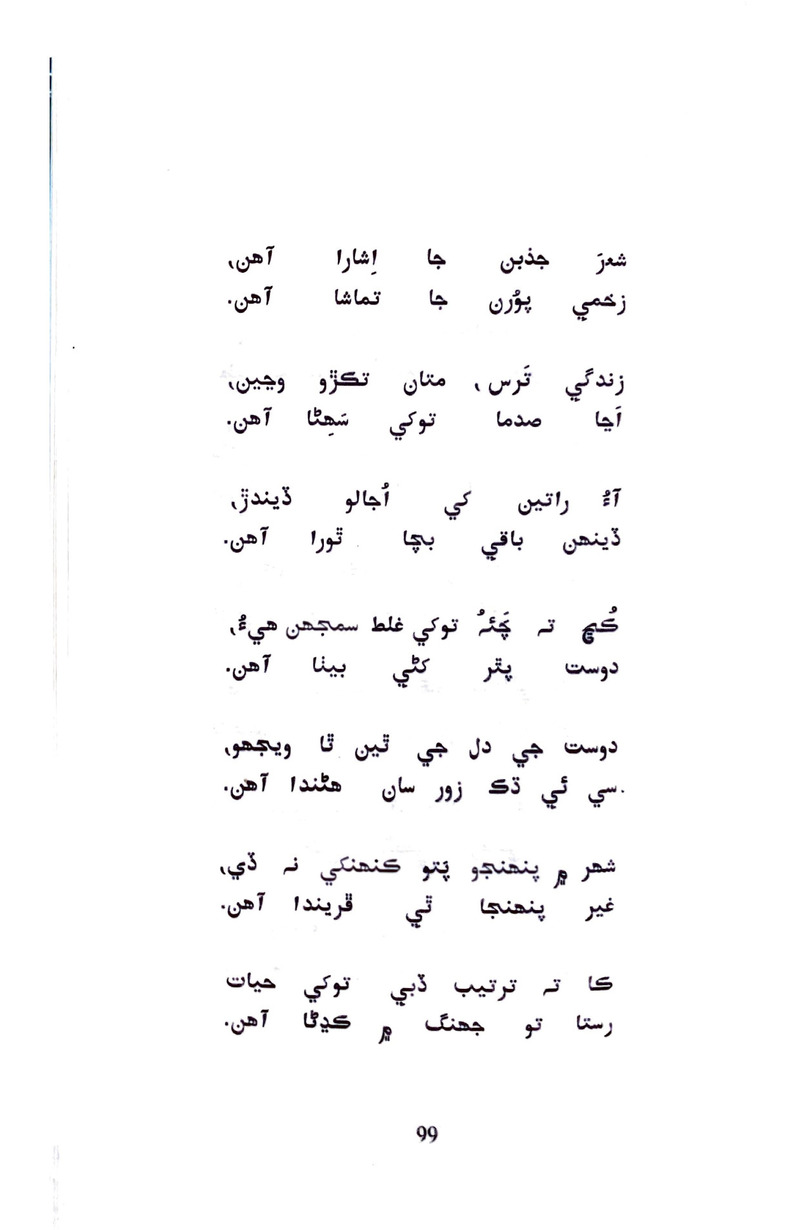 شعرَ جذبن جا اِشارا آهن،
زخمي پوُرن جا تماشا آهن.
زندگي تَرس، متان تڪڙو وڃين،
اَڃا صدما توکي سَهِڻا آهن.
آءٌ راتين کي اُجالو ڏيندڙ،
ڏينهن باقي بچا ٿورا آهن.
ڪُڇ تہ چَئہُ توکي غلط سمجهن هيءُ،
دوست پٿر کڻي بيٺا آهن.
دوست جي دل جي ٿين ٿا ويجهو،
سي ئي ڌڪ زور سان هڻندا آهن.
شهر ۾ پنهنجو پَتو ڪنهنکي نہ ڏي،
غير پنهنجا ٿي ڦريندا آهن.
ڪا تہ ترتيب ڏبي توکي حيات
رستا تو جهنگ ۾ ڪڍڻا آهن.
99